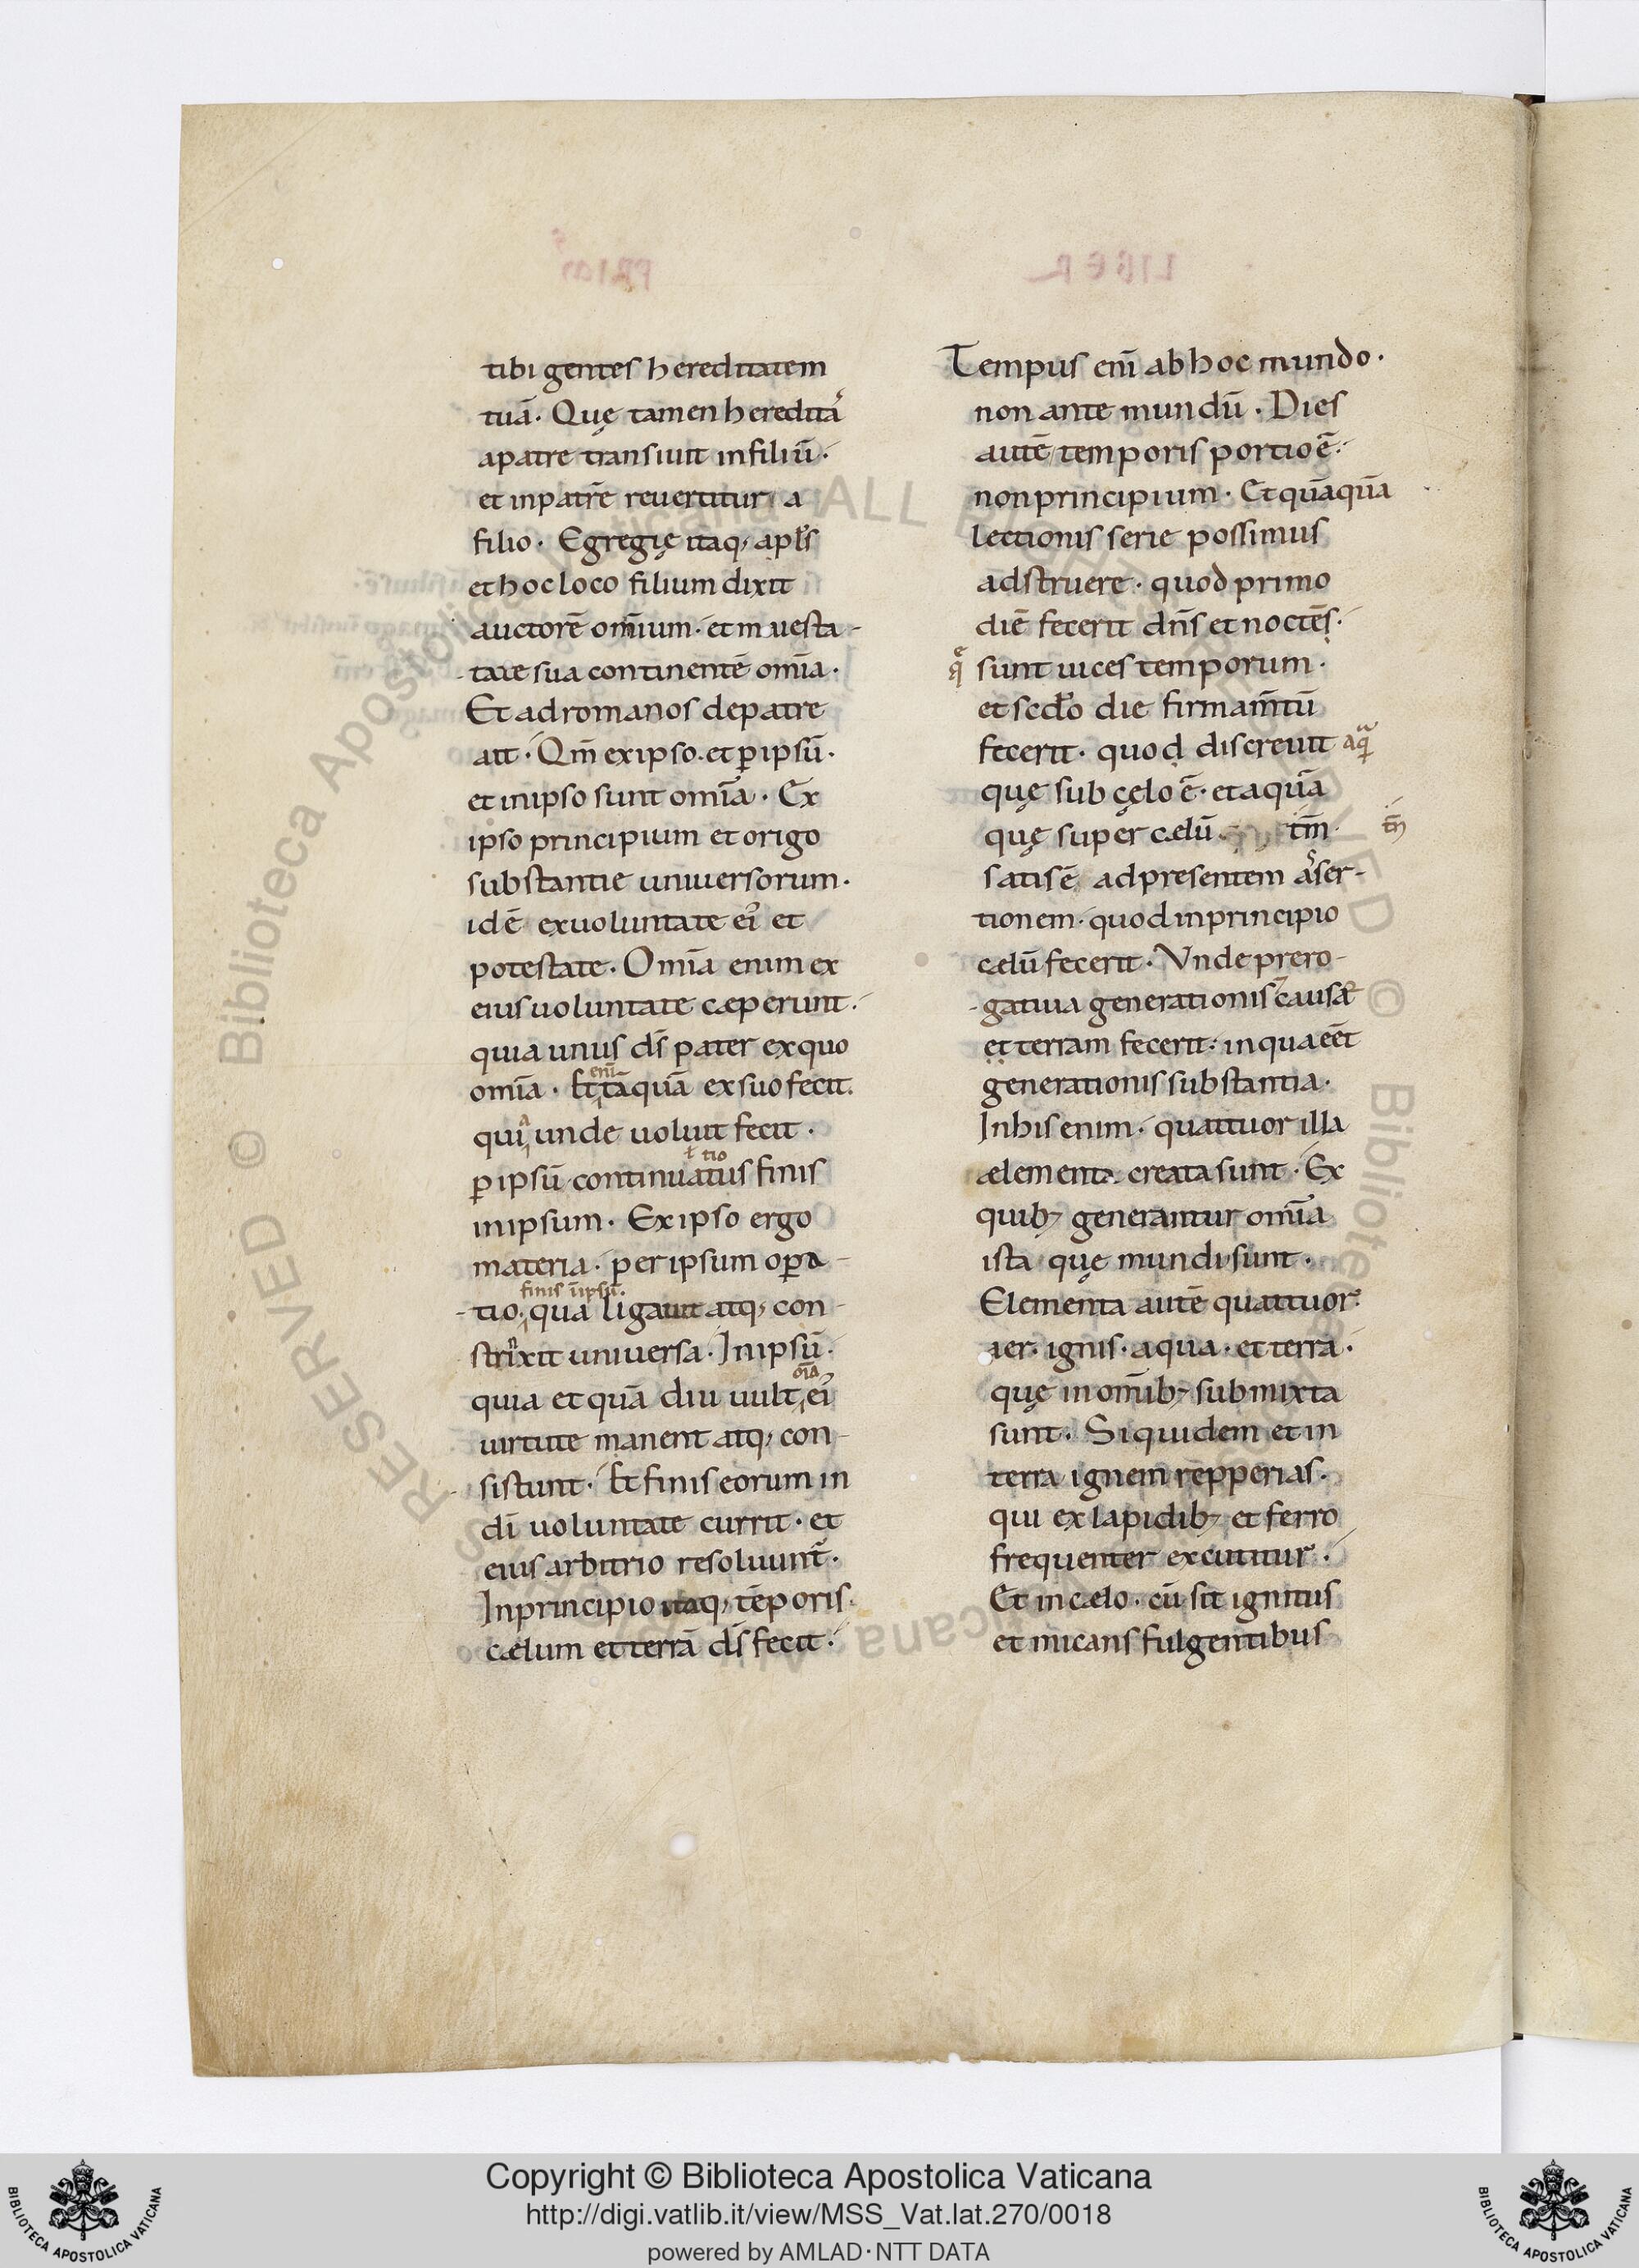 tibi gentes hereditatem
tuā. Quę tamen heredita͛
apatre transiuit infiliū.
et inpatrē reuertitur a
filio. Egregię itaq; apl̄s
et hoc loco filium dixit
auctorē om̄ium. et maiesta-
-tate sua continentē om̄ia.
Et adromanos depatre
ait. Qm̄ exipso. et ꝑ ipsū.
et inipso sunt om̄ia. Ex
ipso principium et origo
substantie uniuersorum.
id ē exuoluntate ei᾿ et
potestate. Om̄ia enim ex
eius uoluntate cæperunt.
quia unus ds̄ pater exquo
om̄ia. Et tāquā ex suo fecit.
enī
qui unde uoluit fecit.
ꝑ ipsū continuatus finis
ł tio
inipsum. Ex ipso ergo
materia. per ipsum oꝑa-
-tio. qua ligauit atq; con-
finis īipsū.
strixit uniuersa. Inipsū.
quia et quā diu uult ei᾿
om̄a
uirtute manent atq; con-
sistunt. Et finis eorum in
dī uoluntate currit. et
eius arbitrio resoluunt̄.
Inprincipio itaq; tēporis.
cælum et terrā ds̄ fecit.
LIBER
PRIM᾿
Tempus enī ab hoc mundo.
non ante mundū. Dies
autē temporis portio ē.
non principium. Et quāquā
lectionis serie possimus
adstruere. quod primo
diē fecerit dn̄s et noctēs.
q̨ sunt uices temporum.
et scd̄o die firmam̄tū
fecerit. quod discreuit aq̄
quę sub cęlo ē. et aquā
quę super cælū. tm̄ tm̄
satis ē adpresentem aser-
tionem. quod inprincipio
cælū fecerit. Vnde prero-
-gatiua generationis causæ
et terram fecerit. inqua eēt
generationis substantia.
Inhis enim. quattuor illa
ælementa creata sunt. Ex
quib; generantur om̄ia
ista quę mundi sunt.
Elementa autē quattuor.
aer. ignis. aqua. et terra.
quę in om̄ib; submixta
sunt. Siquidem et in
terra ignem repperias.
qui ex lapidib; et ferro
frequenter excutitur.
Et in cælo. cū sit ignitus
et micans fulgentibus
© Biblioteca Apostolica Vaticana ALL RIGHTS RESERVED
Copyright © Biblioteca Apostolica Vaticana
http://digi.vatlib.it/view/MSS_Vat.lat.270/0018
powered by AMLAD·NTT DATA
BIBLIOTECA APOSTOLICA VATICANA
BIBLIOTECA APOSTOLICA VATICANA